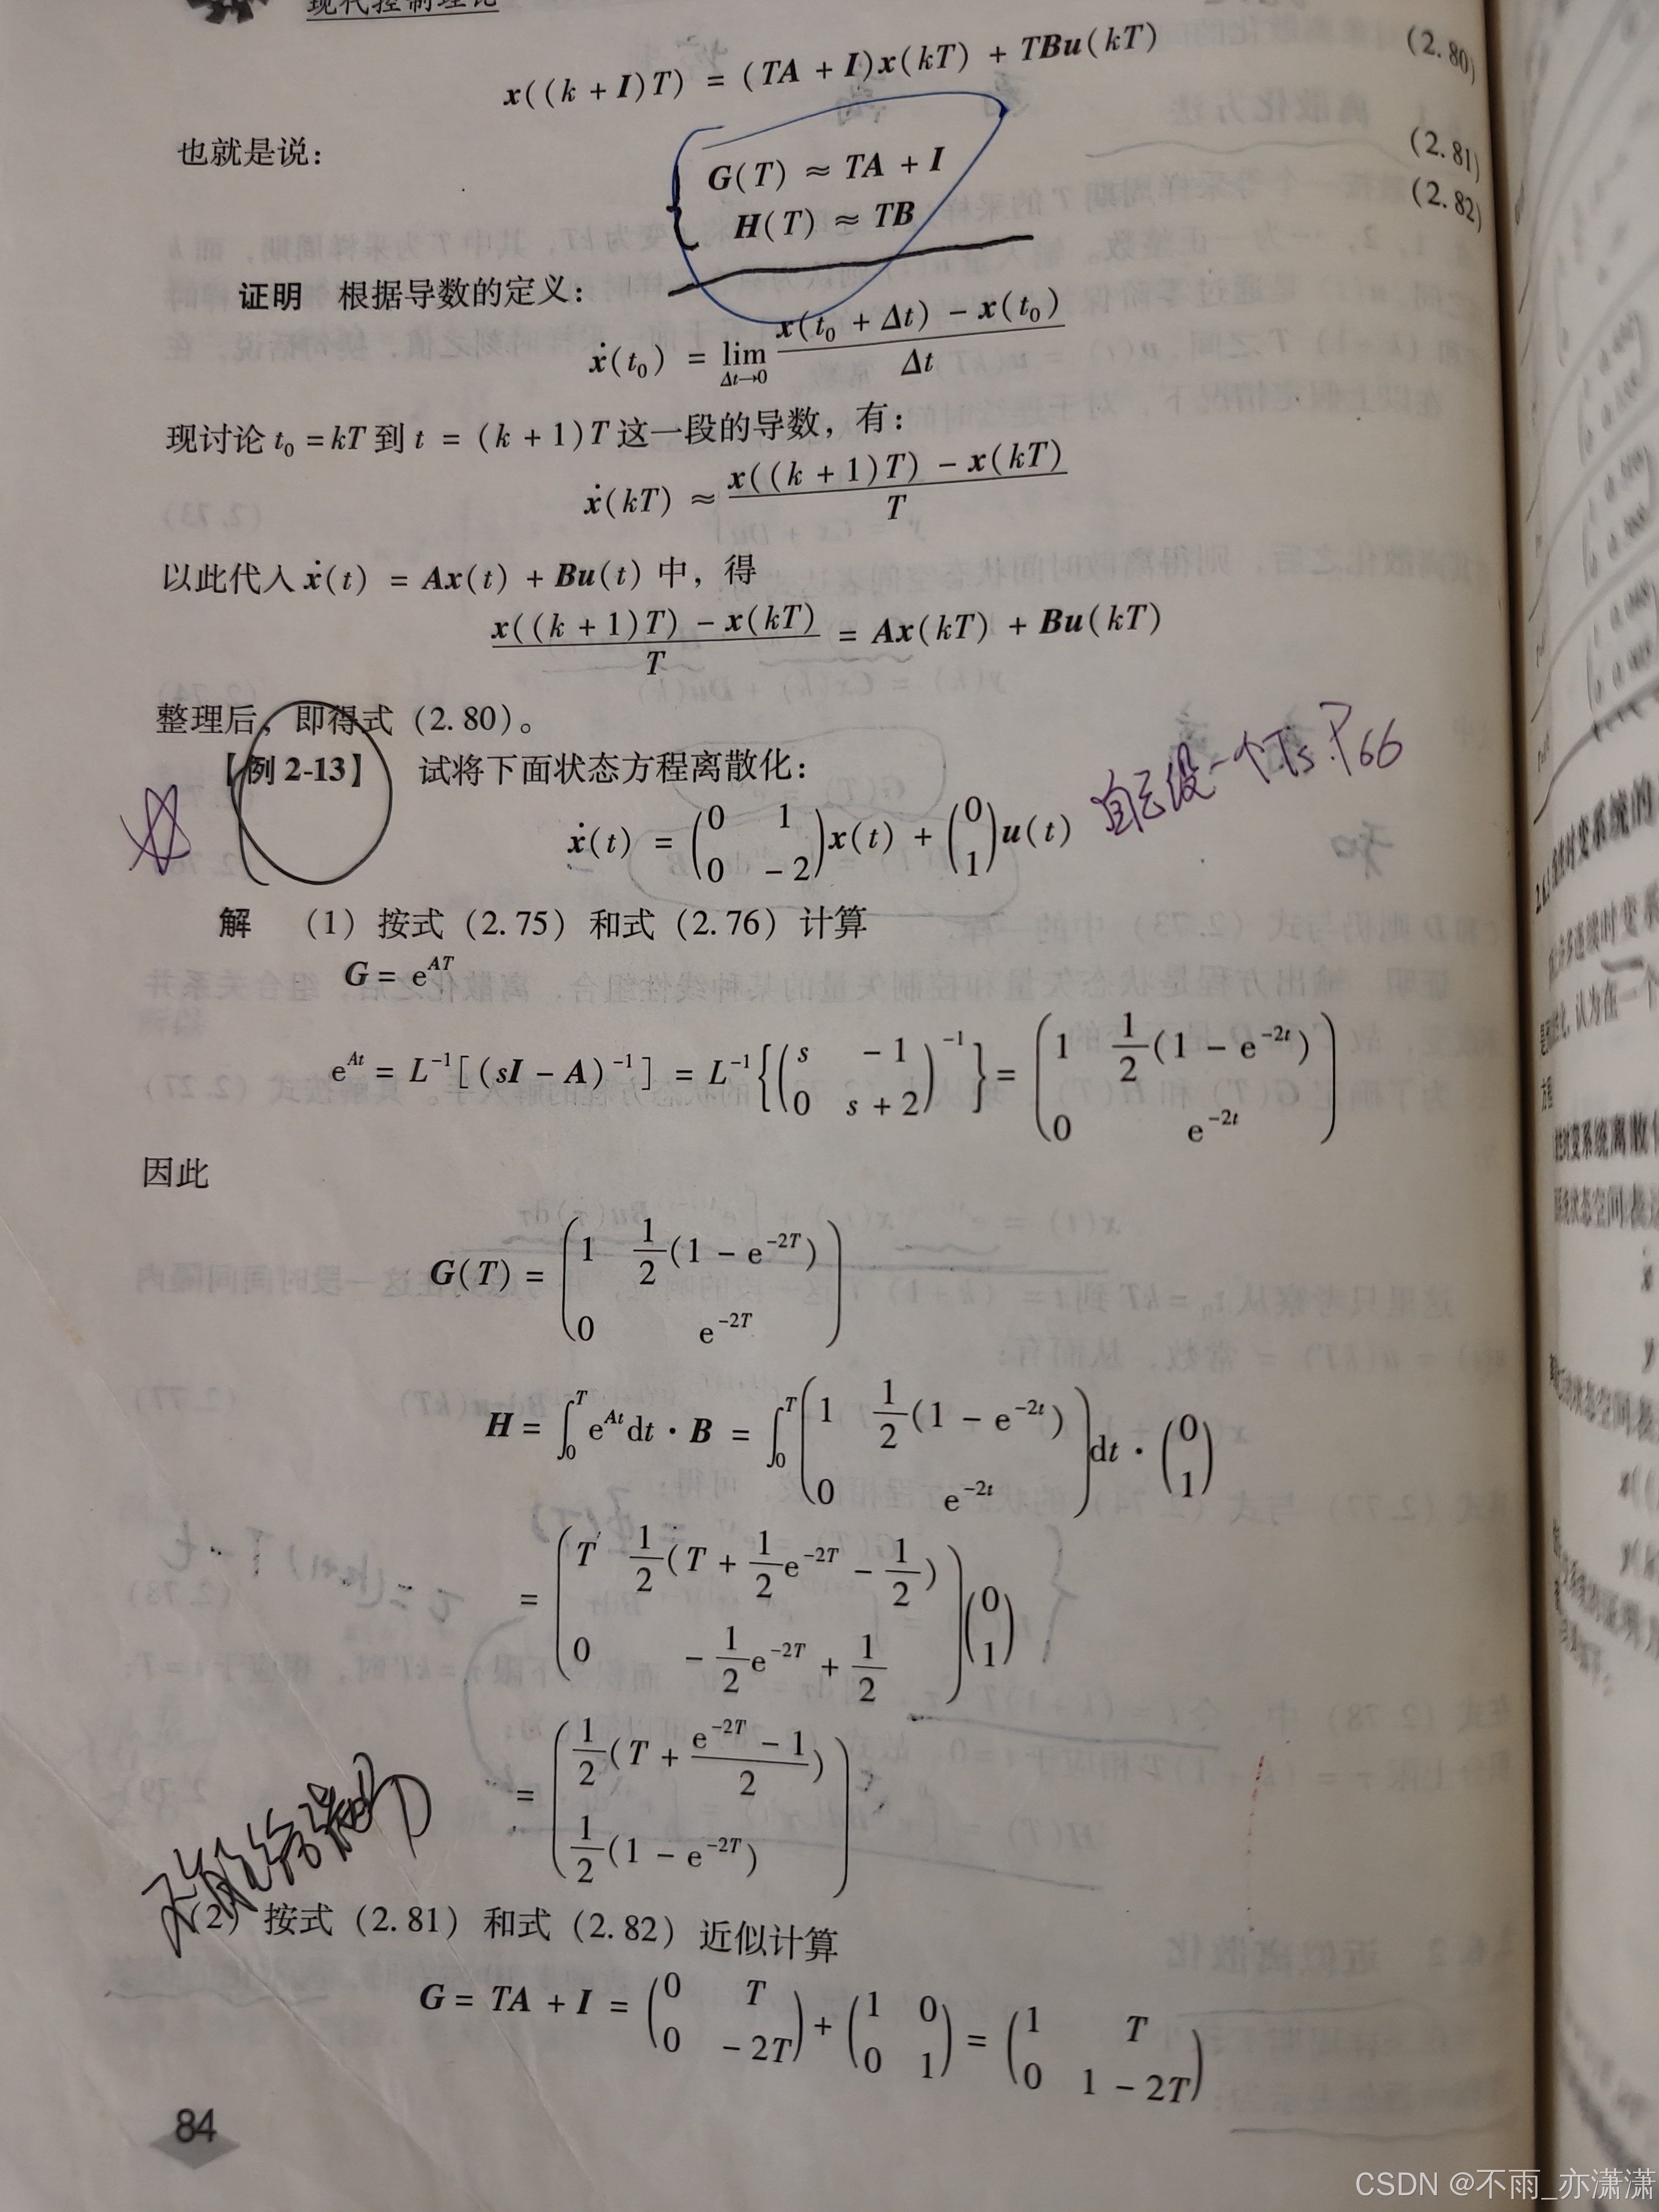 现代控制理论
x((k + I)T) = (TA + I)x(kT) + TBu(kT) (2.80)
也就是说:
G(T) ≈ TA + I (2.81)
H(T) ≈ TB (2.82)
证明 根据导数的定义:
ẋ(t₀) = lim_{Δt→0} (x(t₀ + Δt) − x(t₀))/Δt
现讨论 t₀ = kT 到 t = (k + 1)T 这一段的导数,有:
ẋ(kT) ≈ (x((k + 1)T) − x(kT))/T
以此代入 ẋ(t) = Ax(t) + Bu(t) 中,得
(x((k + 1)T) − x(kT))/T = Ax(kT) + Bu(kT)
整理后,即得式(2.80)。
【例 2-13】 试将下面状态方程离散化:
ẋ(t) = (0 1; 0 −2)x(t) + (0; 1)u(t) 自己设一个Ts. P66
解 (1)按式(2.75)和式(2.76)计算
G = e^{AT}
e^{At} = L⁻¹[(sI − A)⁻¹] = L⁻¹{(s −1; 0 s + 2)⁻¹} = (1 1/2(1 − e^{−2t}); 0 e^{−2t})
因此
G(T) = (1 1/2(1 − e^{−2T}); 0 e^{−2T})
H = ∫₀^T e^{At}dt · B = ∫₀^T (1 1/2(1 − e^{−2t}); 0 e^{−2t})dt · (0; 1)
= (T 1/2(T + 1/2e^{−2T} − 1/2); 0 −1/2e^{−2T} + 1/2)(0; 1)
= (1/2(T + (e^{−2T} − 1)/2); 1/2(1 − e^{−2T}))
(2)按式(2.81)和式(2.82)近似计算
G = TA + I = (0 T; 0 −2T) + (1 0; 0 1) = (1 T; 0 1 − 2T)
84
CSDN @不雨_亦潇潇